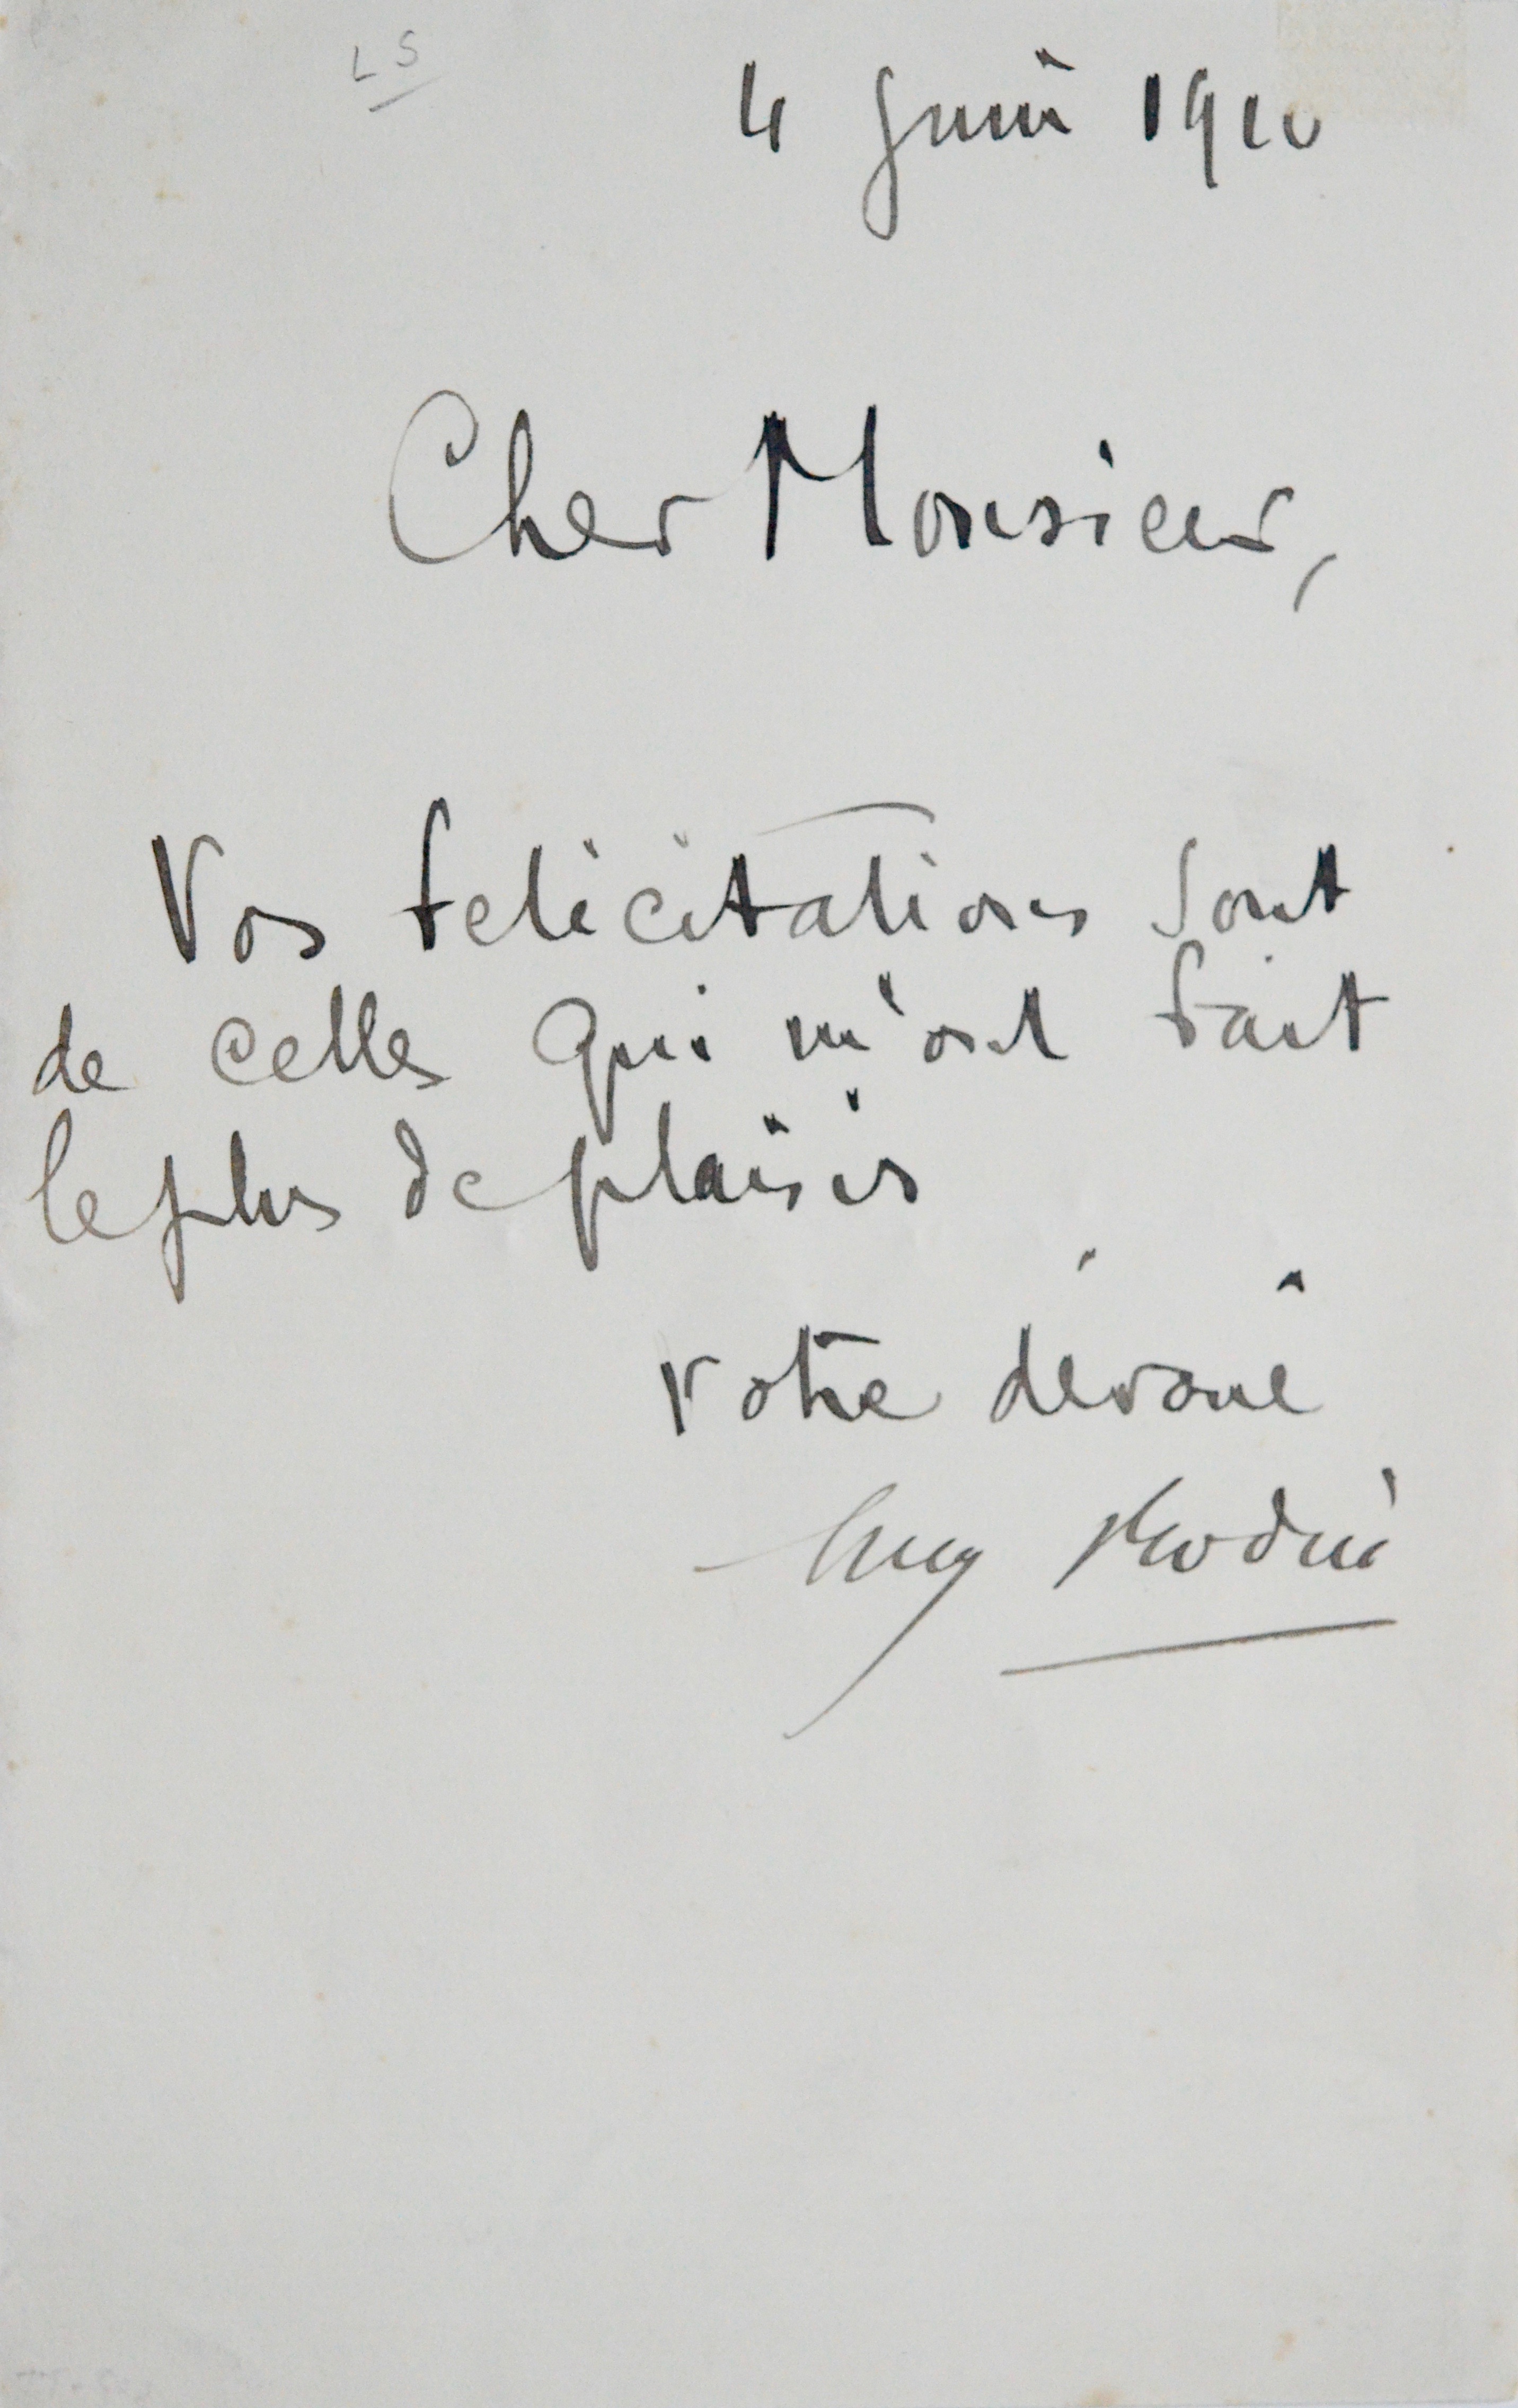 LS
4 Juin 1910
Cher Monsieur,
Vos felicitations sont
de celles qui m'ont fait
le plus de plaisir
votre dévoué
Aug Rodin